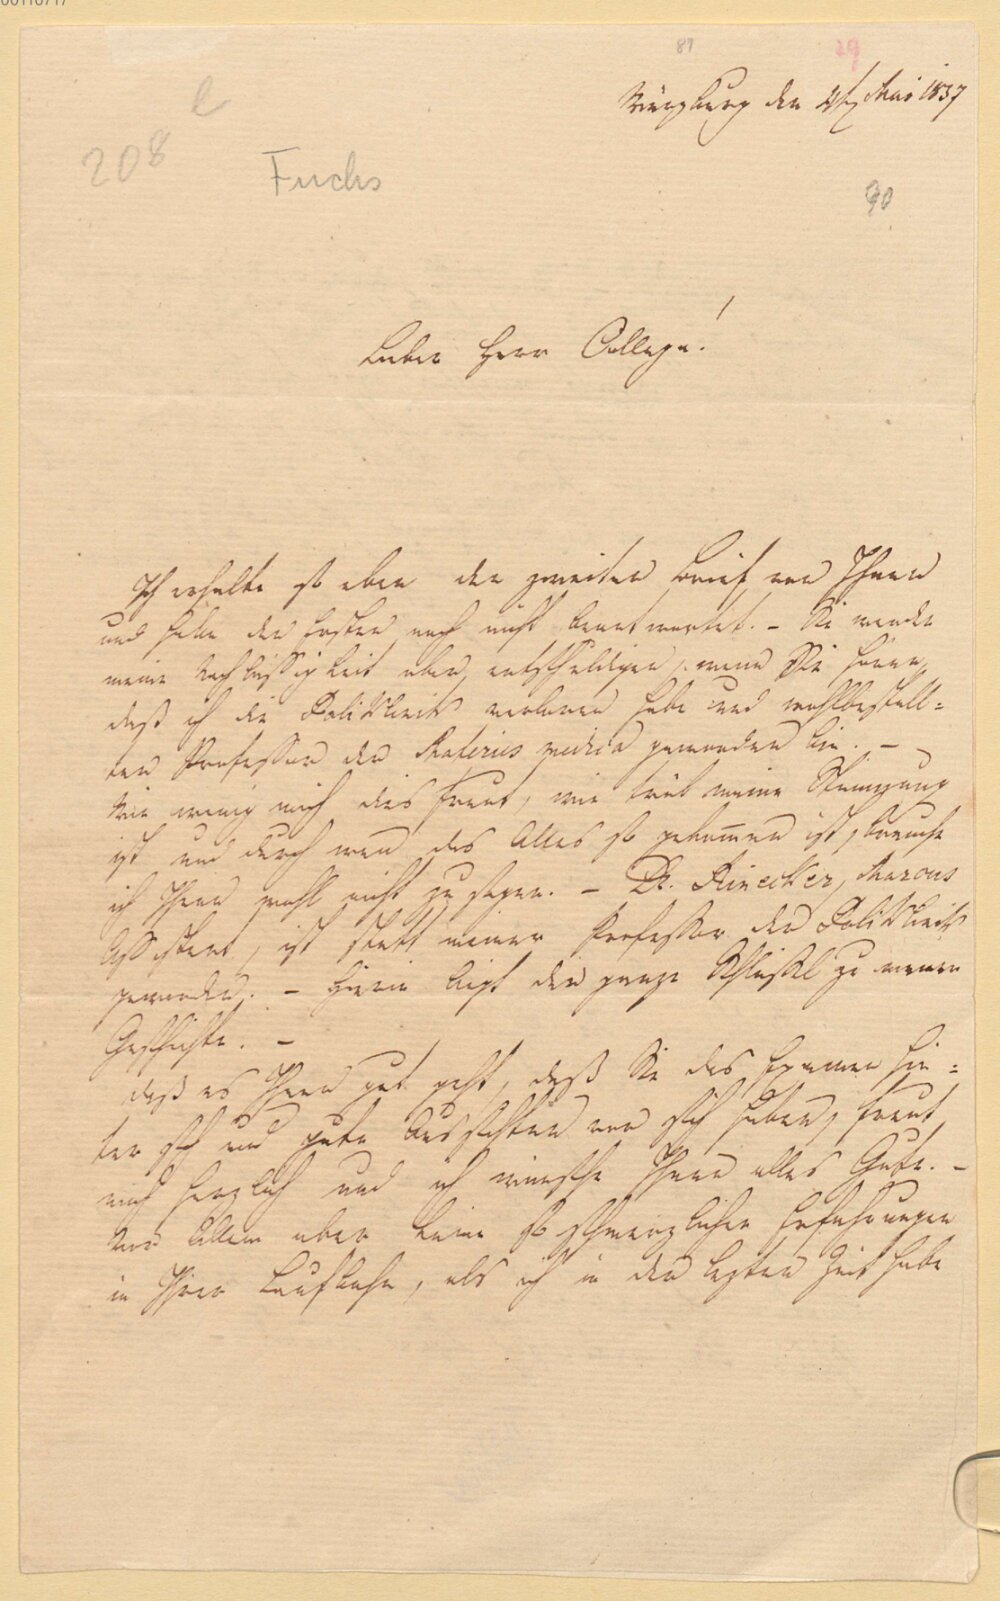 89
29
Würzburg den 4/7 Mai 1837
l
208
Fuchs
90
Lieber Herr College!
Ich erhalte so eben den zweiten Brief von Ihnen
und habe den ersten noch nicht beantwortet. – Sie werden
meine Nachlässigkeit aber entschuldigen, wenn Sie hören,
daß ich die Poliklinik verloren habe und wohlbestall=
ter Professor der Materies medica geworden bin. –
Wie wenig mich dies freut, wie trüb meine Stimmung
ist und durch wen das Alles so gekommen ist, brauche
ich Ihnen wohl nicht zu sagen. – Dr. Rinecker, Marcus
Assistent, ist statt meiner Professor der Poliklinik
geworden. – Hierin liegt der ganze Schlüssel zu meiner
Geschichte. –
Daß es Ihnen gut geht, daß Sie das Examen hin=
ter sich und gute Aussichten vor sich haben, freut
mich herzlich und ich wünsche Ihnen alles Gute. –
Vor Allem aber keine so schmerzlichen Erfahrungen
in Ihrer Laufbahn, als ich in der lezten Zeit habe